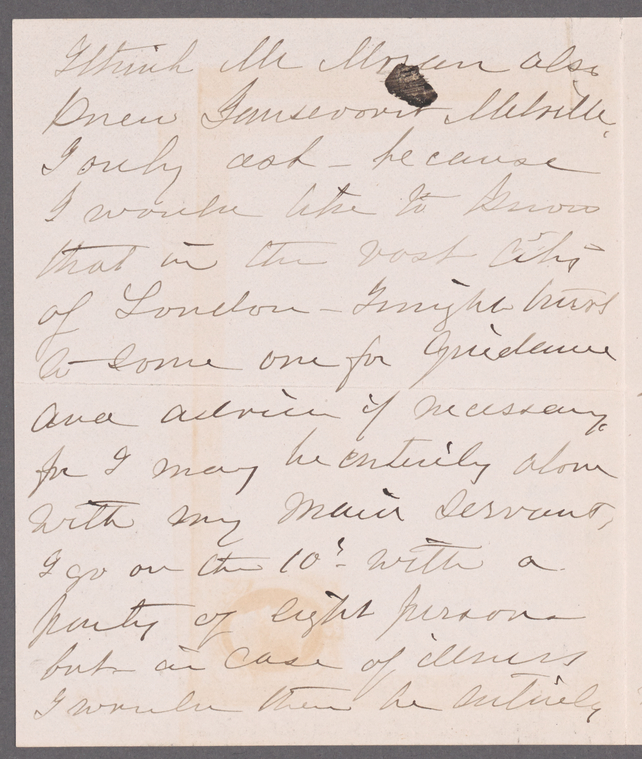 I think Mr Morgan also
knew Gansevoort Melville.
I only ask – because
I would like to know
that in the vast City
of London – I might trust
to some one for guidance
and advice if necessary,
for I may be entirely alone
with my maid servant,
I go on the 10th with a
party of eight persons
but in case of illness
I would then be entirely